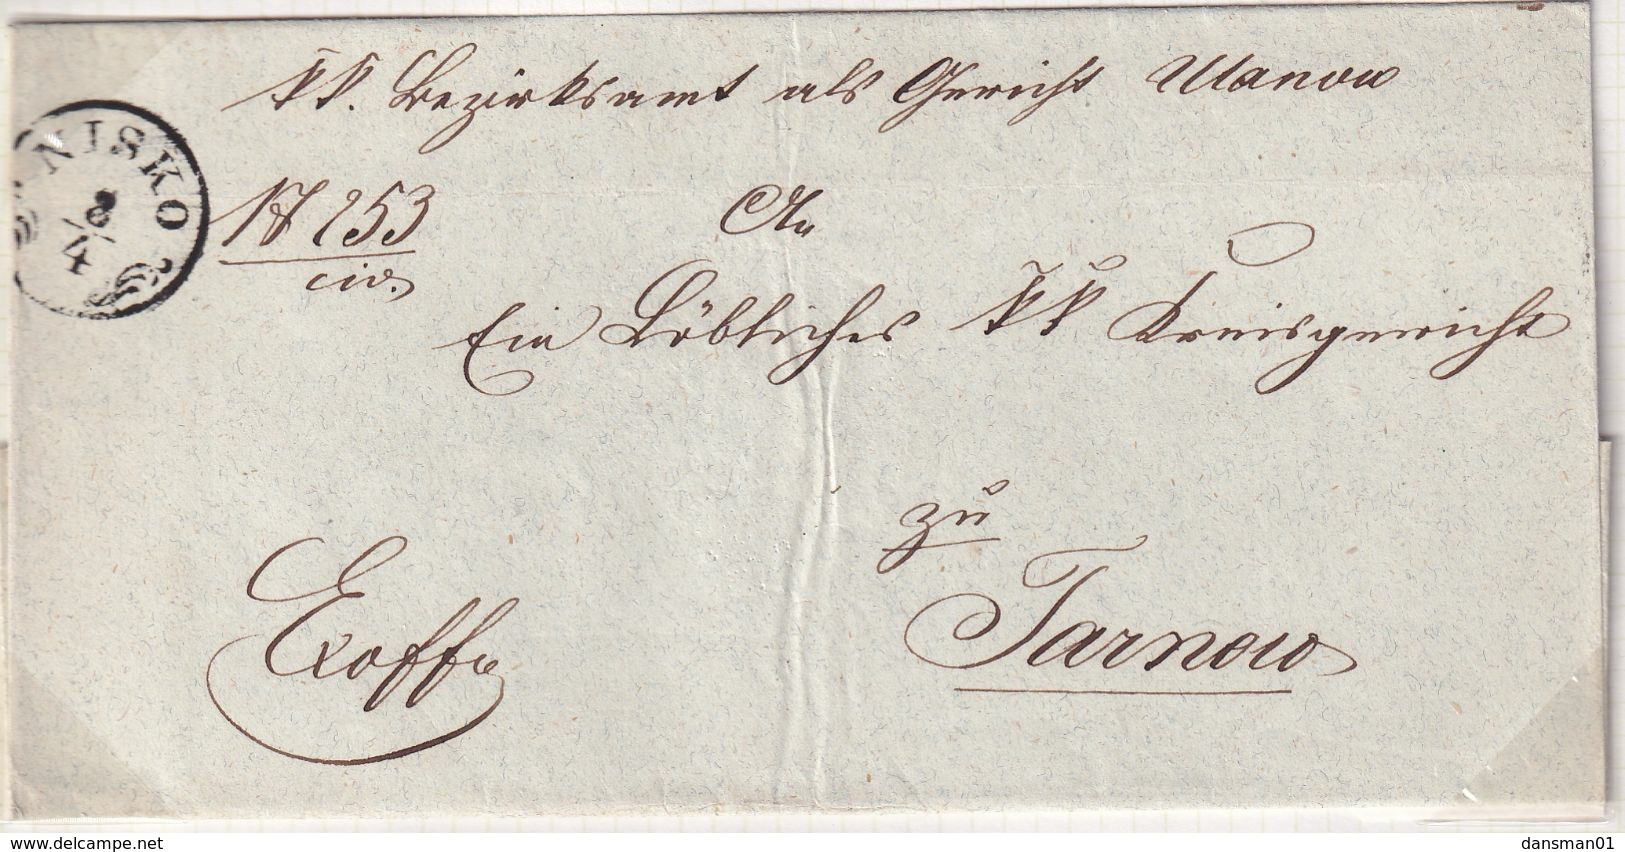 KK. Bezirksamt als Gericht Ulanow
NISKO
4/8
N 253
civ.
An
Ein Löbliches KK Kreisgericht
zu
Tarnow
Exoffo
delcampe.net
dansman01